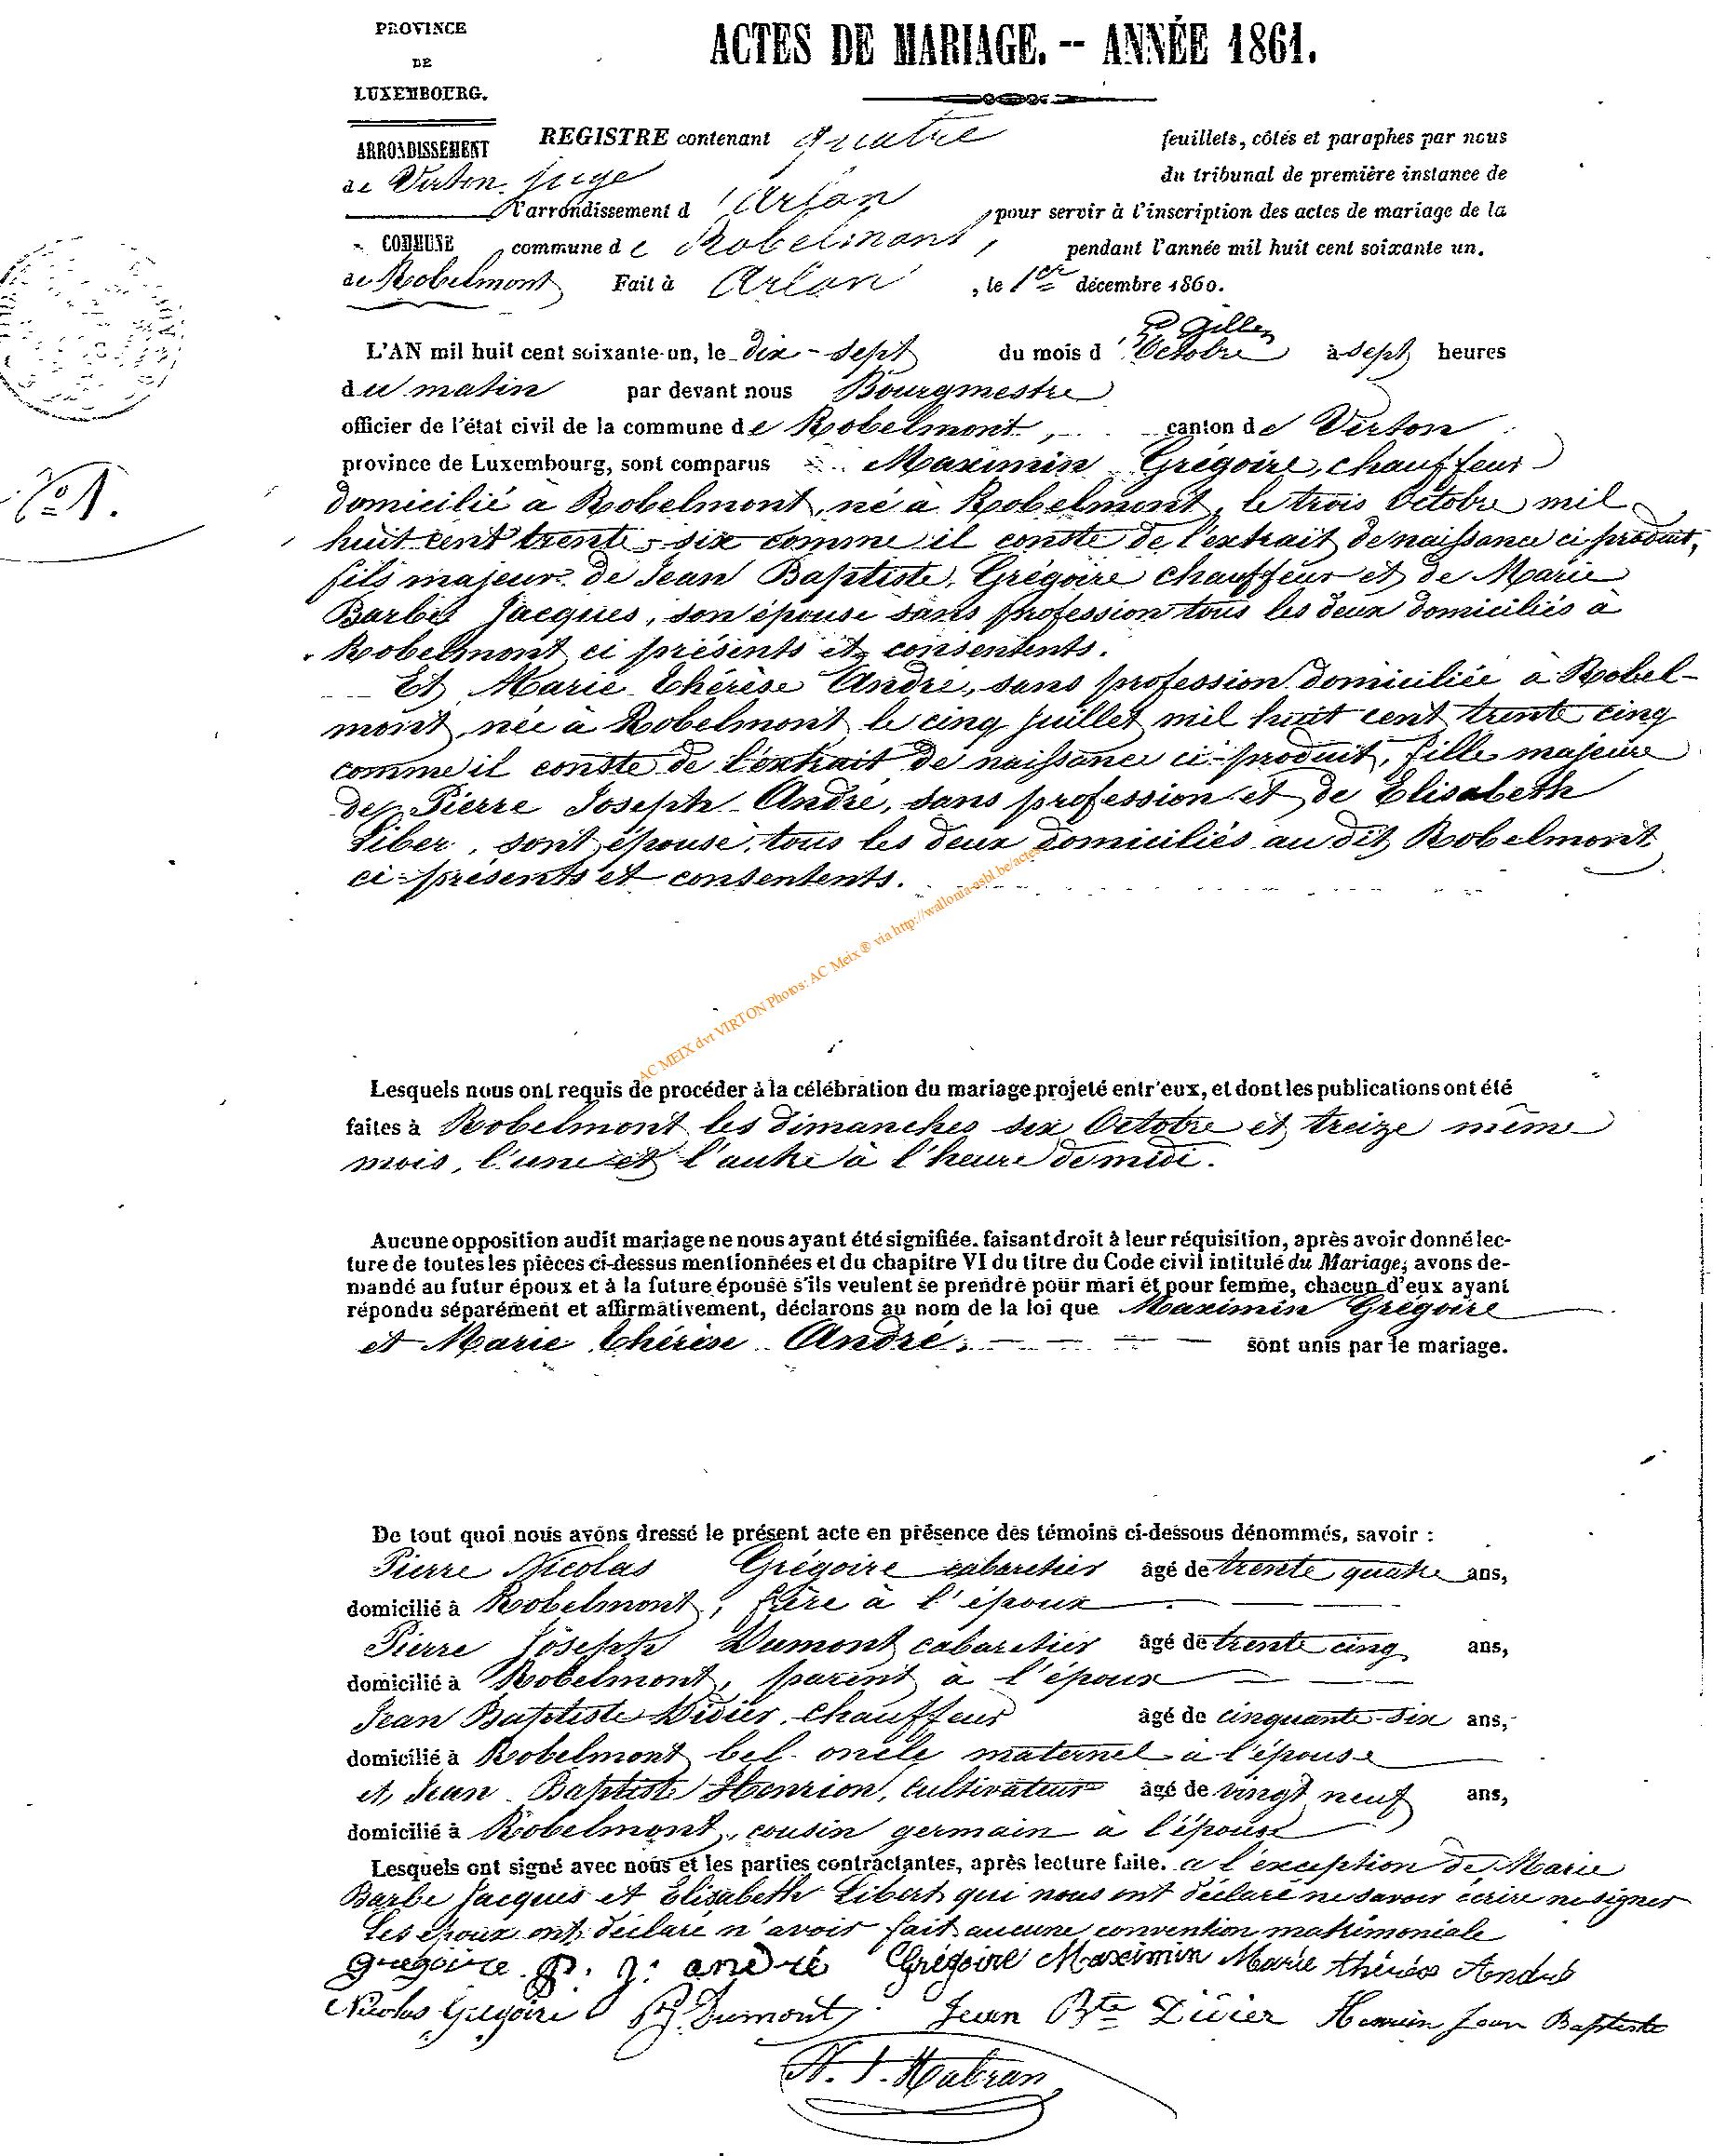 PROVINCE
DE
LUXEMBOURG.
ARRONDISSEMENT
de Virton.
COMMUNE
de Robelmont
ACTES DE MARIAGE. -- ANNÉE 1861.
REGISTRE contenant quatre feuillets, côtés et paraphes par nous
juge du tribunal de première instance de
l'arrondissement d'Arlon pour servir à l'inscription des actes de mariage de la
commune de Robelmont, pendant l'année mil huit cent soixante un.
Fait à Arlon, le 1er décembre 1860.
N° 1.
L'AN mil huit cent soixante-un, le dix-sept du mois d'Octobre à sept heures
du matin par devant nous Bourgmestre
officier de l'état civil de la commune de Robelmont, canton de Virton
province de Luxembourg, sont comparus Maximin Grégoire, chauffeur
domicilié à Robelmont, né à Robelmont, le trois Octobre mil
huit cent trente-six comme il conste de l'extrait de naissance ci-produit,
fils majeur de Jean Baptiste Grégoire chauffeur et de Marie
Barbe Jacques, son épouse sans profession tous les deux domiciliés à
Robelmont ci présents et consentents.
Et Marie Thérèse André, sans profession domiciliée à Robel-
mont, née à Robelmont le cinq juillet mil huit cent trente cinq
comme il conste de l'extrait de naissance ci-produit, fille majeure
de Pierre Joseph André, sans profession et de Elisabeth
Liber, sont épouse, tous les deux domiciliés au dit Robelmont
ci-présents et consentents.
AC MEIX dvt VIRTON Photos: AC Meix ® via http://wallonia-asbl.be/actes
Lesquels nous ont requis de procéder à la célébration du mariage projeté entr'eux, et dont les publications ont été
faites à Robelmont les dimanches six Octobre et treize même
mois, l'une et l'autre à l'heure de midi.
Aucune opposition audit mariage ne nous ayant été signifiée. faisant droit à leur réquisition, après avoir donné lec-
ture de toutes les pièces ci-dessus mentionnées et du chapitre VI du titre du Code civil intitulé du Mariage; avons de-
mandé au futur époux et à la future épouse s'ils veulent se prendre pour mari et pour femme, chacun d'eux ayant
répondu séparément et affirmativement, déclarons au nom de la loi que Maximin Grégoire
et Marie Thérèse André, sont unis par le mariage.
De tout quoi nous avons dressé le présent acte en présence des témoins ci-dessous dénommés, savoir :
Pierre Nicolas Grégoire cabaretier âgé de trente quatre ans,
domicilié à Robelmont, frère à l'époux
Pierre Joseph Dumont cabaretier âgé de trente cinq ans,
domicilié à Robelmont, parent à l'époux
Jean Baptiste Didier, chauffeur âgé de cinquante-six ans,
domicilié à Robelmont bel oncle maternel à l'épouse
et Jean Baptiste Henrion, cultivateur âgé de vingt neuf ans,
domicilié à Robelmont, cousin germain à l'épouse
Lesquels ont signé avec nous et les parties contractantes, après lecture faite. a l'exception de Marie
Barbe Jacques et Elisabeth Libert qui nous ont déclaré ne savoir écrire ne signer
Les époux ont déclaré n'avoir fait aucune convention matrimoniale
grégoire p. j. andré Grégoire Maximin Marie thérèse André
Nicolas Grégoire PJ Dumont Jean Bte Didier Henrion Jean Baptiste
N. J. Habran